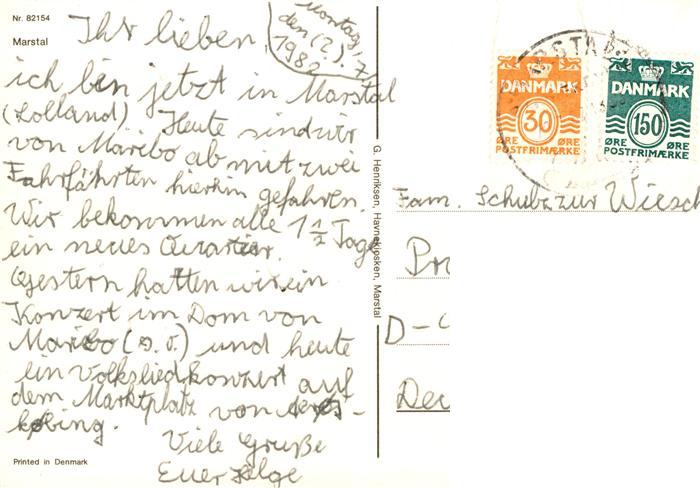 Nr. 82154
Marstal
Montag,
den (2). 7
1982
Ihr lieben,
ich bin jetzt in Marstal
(Lolland) Heute sind wir
von Maribo ab mit zwei
Fahrfährten hierhin gefahren.
Wir bekommen alle 1 1/2 Tage
ein neues Quartier.
Gestern hatten wir ein
Konzert im Dom von
Maribo (s. o.) und heute
ein Volksliedkonzert auf
dem Marktplatz von
købing.
Viele Gruße
Euer Helge
Printed in Denmark
G. Henriksen, Havnekiosken, Marstal
DANMARK
30
ØRE ØRE
POSTFRIMÆRKE
DANMARK
150
ØRE ØRE
POSTFRIMÆRKE
Fam. Schulz zur Wiesch
Pr
D-
De